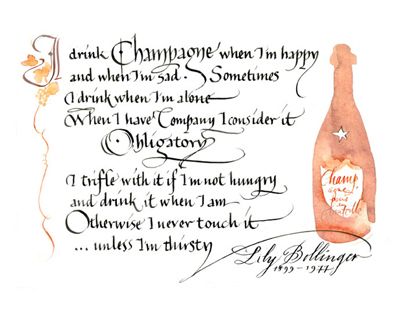 I drink Champagne when I'm happy
and when I'm sad. Sometimes
I drink when I'm alone
When I have Company I consider it
Obligatory
I trifle with it if I'm not hungry
and drink it when I am
Otherwise I never touch it
... unless I'm thirsty
Lily Bollinger
1899 - 1977
Champ
agne
pour